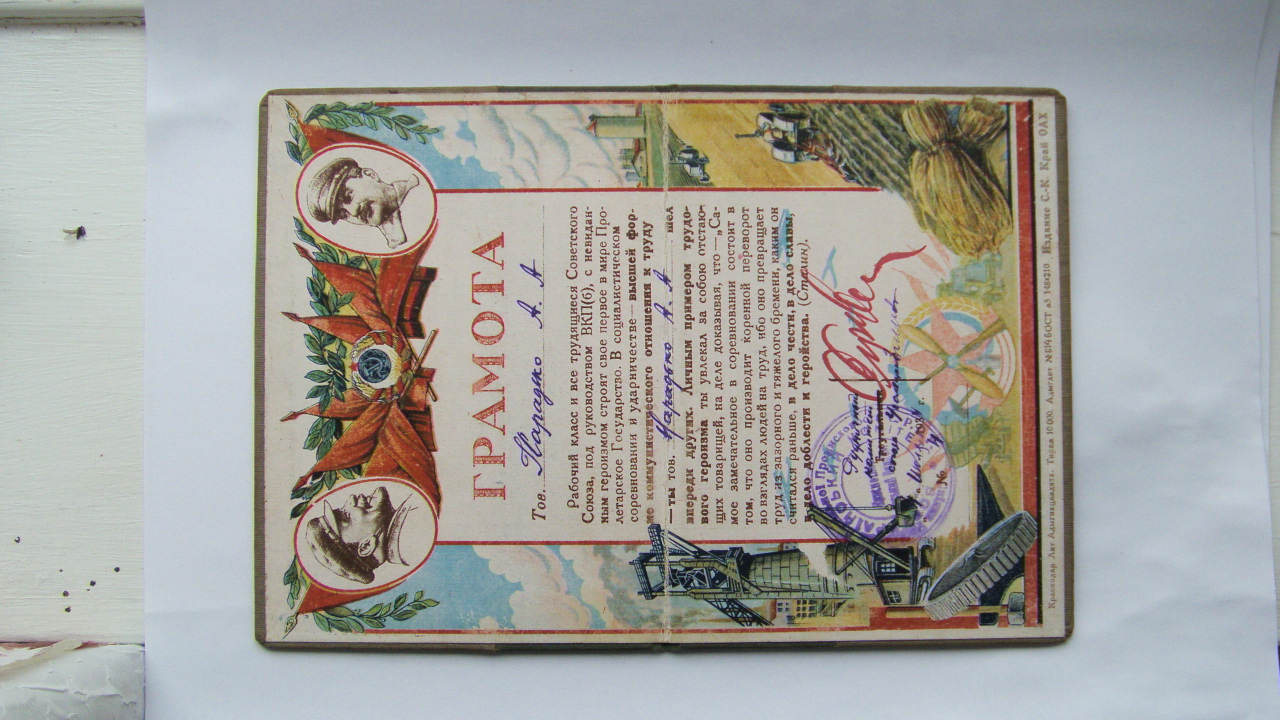 ГРАМОТА
Тов. Нарадько А. А
Рабочий класс и все трудящиеся Советского
Союза, под руководством ВКП(б), с невидан-
ным героизмом строят свое первое в мире Про-
летарское Государство. В социалистическом
соревновании и ударничестве — высшей фор-
ме коммунистического отношения к труду
— ты тов. Нарадько А. А шел
впереди других. Личным примером трудо-
вого героизма ты увлекал за собою отстаю-
щих товарищей, на деле доказывая, что — „Са-
мое замечательное в соревновании состоит в
том, что оно производит коренной переворот
во взглядах людей на труд, ибо оно превращает
труд из зазорного и тяжелого бремени, каким он
считался раньше, в дело чести, в дело славы,
в дело доблести и геройства. (Сталин).
№
Краснодар Лит Адыгнациздата. Тираж 10000. Адыглит № ОСТ а3 148×210 Издание С.-К. Край ОАХ